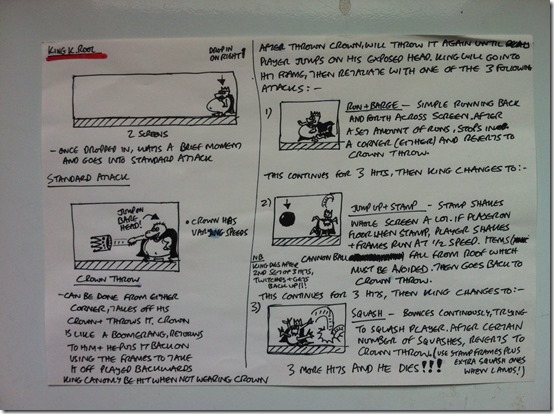 KING K. ROOL
DROP IN
ON RIGHT!
2 SCREENS
- ONCE DROPPED IN, WAITS A BRIEF MOMENT
AND GOES INTO STANDARD ATTACK
STANDARD ATTACK
JUMP ON
BARE
HEAD!
• CROWN HAS
VARYING SPEEDS
CROWN THROW
- CAN BE DONE FROM EITHER
CORNER, TAKES OFF HIS
CROWN + THROWS IT. CROWN
IS LIKE A BOOMERANG, RETURNS
TO HIM + HE PUTS IT BACK ON
USING THE FRAMES TO TAKE
IT OFF PLAYED BACKWARDS
KING CAN ONLY BE HIT WHEN NOT WEARING CROWN
AFTER THROWN CROWN, WILL THROW IT AGAIN UNTIL
PLAYER JUMPS ON HIS EXPOSED HEAD. KING WILL GO INTO
HIT FRAMES, THEN RETALIATE WITH ONE OF THE 3 FOLLOWING
ATTACKS :-
1)
RUN + BARGE - SIMPLE RUNNING BACK
AND FORTH ACROSS SCREEN. AFTER
A SET AMOUNT OF RUNS, STOPS IN
A CORNER (EITHER) AND REVERTS TO
CROWN THROW.
THIS CONTINUES FOR 3 HITS, THEN KING CHANGES TO:-
2)
JUMP UP + STAMP - STAMP SHAKES
WHOLE SCREEN A LOT. IF PLAYER ON
FLOOR WHEN STAMP, PLAYER SHAKES
+ FRAMES RUN AT 1/2 SPEED. ITEMS
FALL FROM ROOF WHICH
MUST BE AVOIDED. THEN GOES BACK TO
CROWN THROW.
CANNON BALL
NB
KING DIES AFTER
2ND SET OF 3 HITS,
TWITCHES + GETS
BACK UP!!
THIS CONTINUES FOR 3 HITS, THEN KING CHANGES TO:-
3)
SQUASH - BOUNCES CONTINUOUSLY, TRYING
TO SQUASH PLAYER. AFTER CERTAIN
NUMBER OF SQUASHES, REVERTS TO
CROWN THROW. (USE STAMP FRAMES PLUS
EXTRA SQUASH ONES
WHEN LANDS!)
3 MORE HITS AND HE DIES!!!